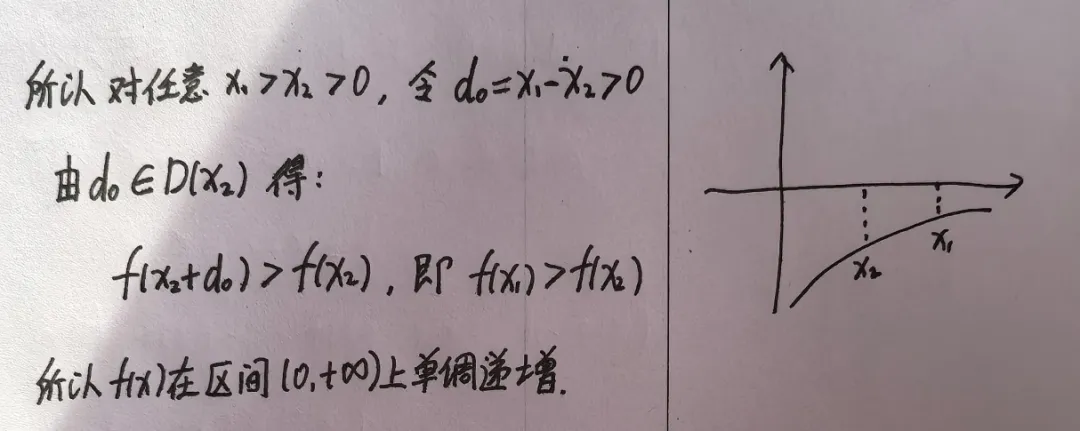 所以 对任意 x₁>x₂>0, 令 d₀=x₁-x₂>0
由d₀∈D(x₂) 得:
f(x₂+d₀)>f(x₂), 即 f(x₁)>f(x₂)
所以 f(x)在区间(0,+∞)上单调递增.
x₂
x₁